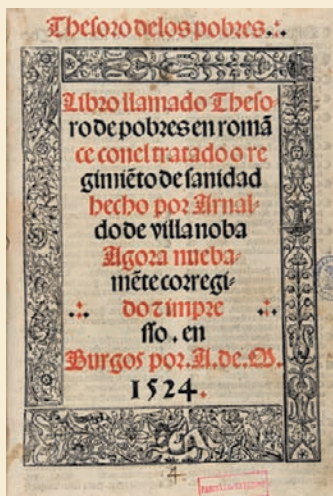 Thesoro delos pobres.
Libro llamado Theso-
ro de pobres en romã
ce con el tratado o re
gimiẽto de sanidad
hecho por Arnal-
do de villa noba
Agora nueba-
mẽte corregi-
do ⁊ impre
sso. en
Burgos por. A. de. M.
1524.